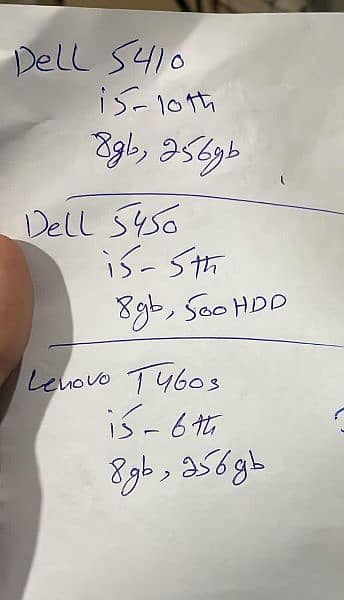 Dell 5410
i5-10th
8gb, 256gb
Dell 5450
i5-5th
8gb, 500HDD
Lenovo T460s
i5-6th
8gb, 256gb